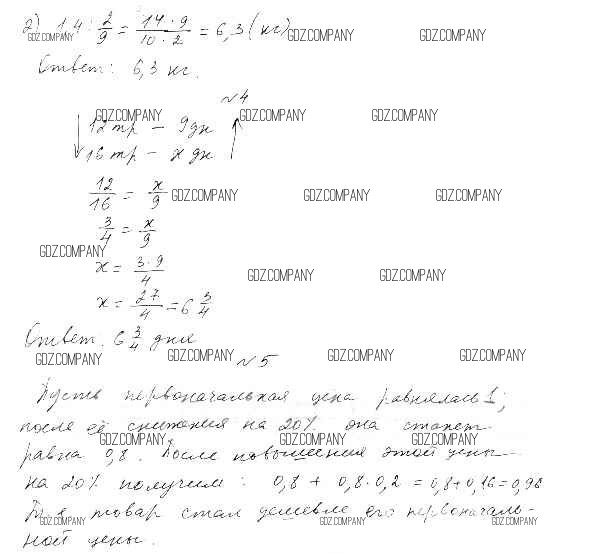 2) 1,4 : 2/9 = 14 · 9 / 10 · 2 = 6,3 (кг)
GDZ.COMPANY GDZ.COMPANY GDZ.COMPANY
Ответ: 6,3 кг.
№4
GDZ.COMPANY GDZ.COMPANY GDZ.COMPANY
12 тр – 9 дн
16 тр – x дн
12/16 = x/9
GDZ.COMPANY GDZ.COMPANY GDZ.COMPANY
3/4 = x/9
GDZ.COMPANY
x = 3 · 9 / 4
GDZ.COMPANY GDZ.COMPANY
x = 27/4 = 6 3/4
Ответ: 6 3/4 дня
GDZ.COMPANY GDZ.COMPANY GDZ.COMPANY GDZ.COMPANY
№5
Пусть первоначальная цена равнялась 1;
после её снижения на 20% она станет
GDZ.COMPANY GDZ.COMPANY GDZ.COMPANY
равна 0,8. После повышения этой цены
на 20% получим: 0,8 + 0,8·0,2 = 0,8+0,16=0,96
GDZ.COMPANY GDZ.COMPANY GDZ.COMPANY
товар стал дешевле его первоначаль-
ной цены.